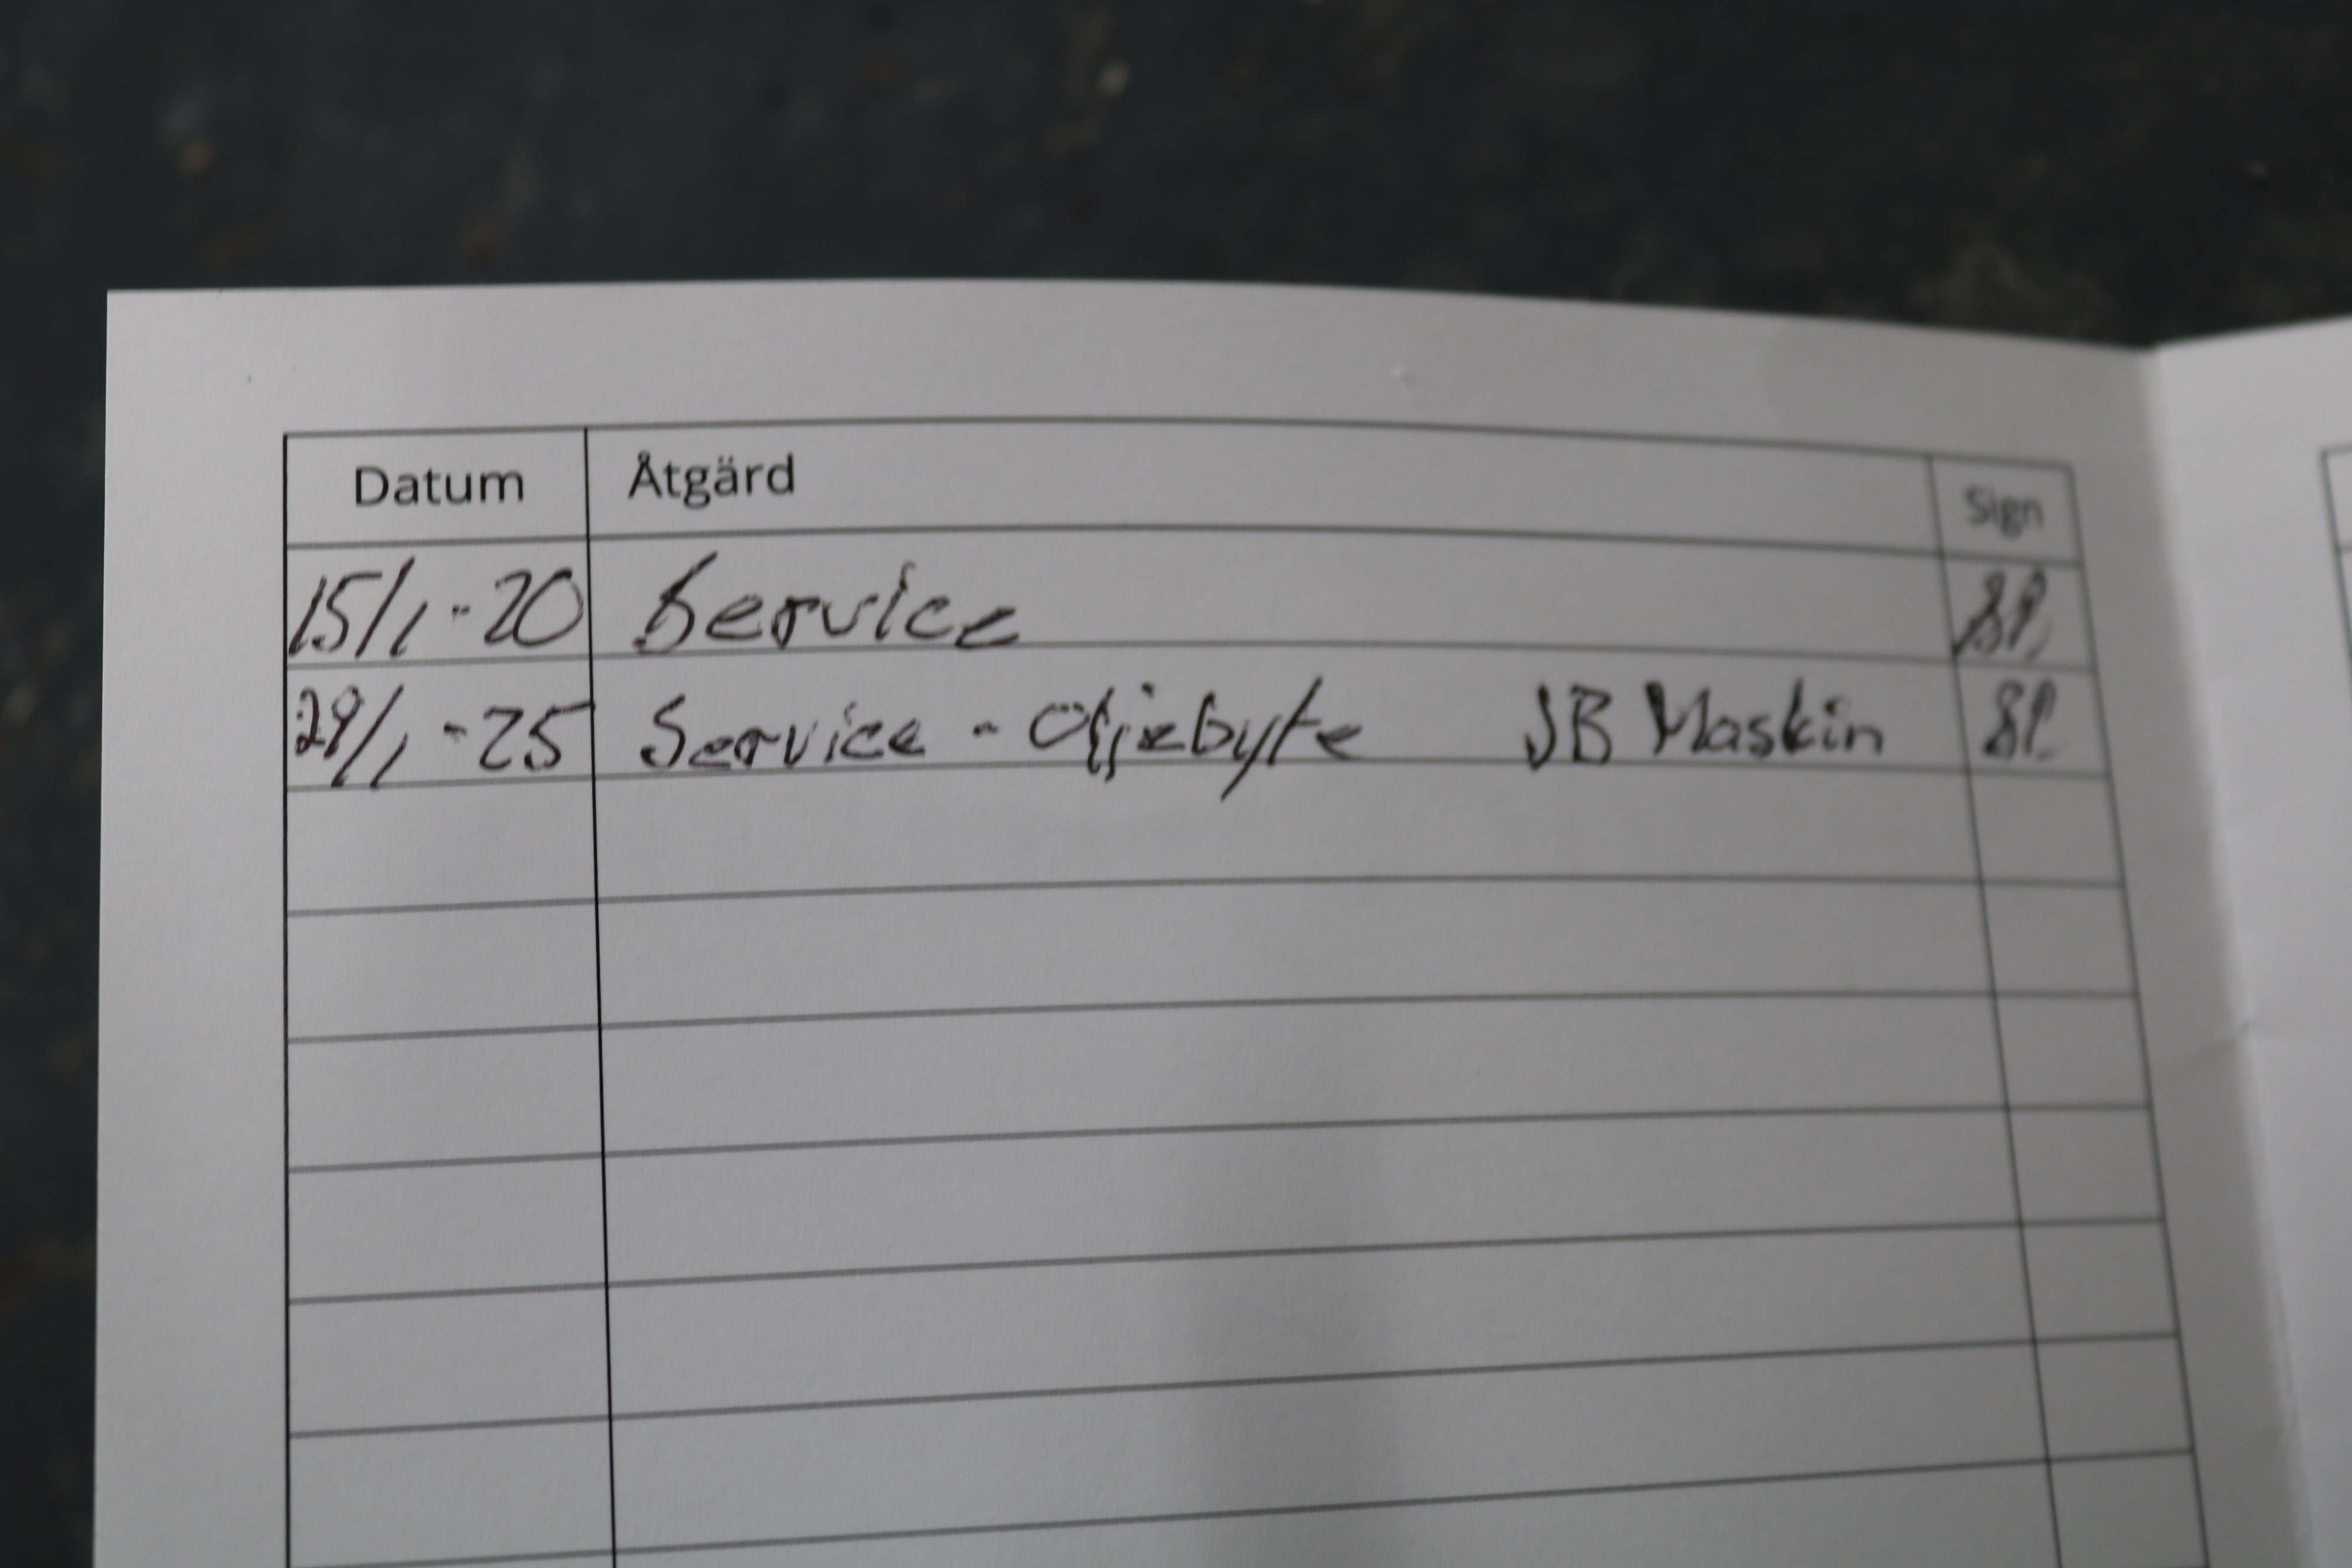 Datum Åtgärd Sign
15/1 - 20 Service
29/1 - 25 Service - Oljebyte JB Maskin